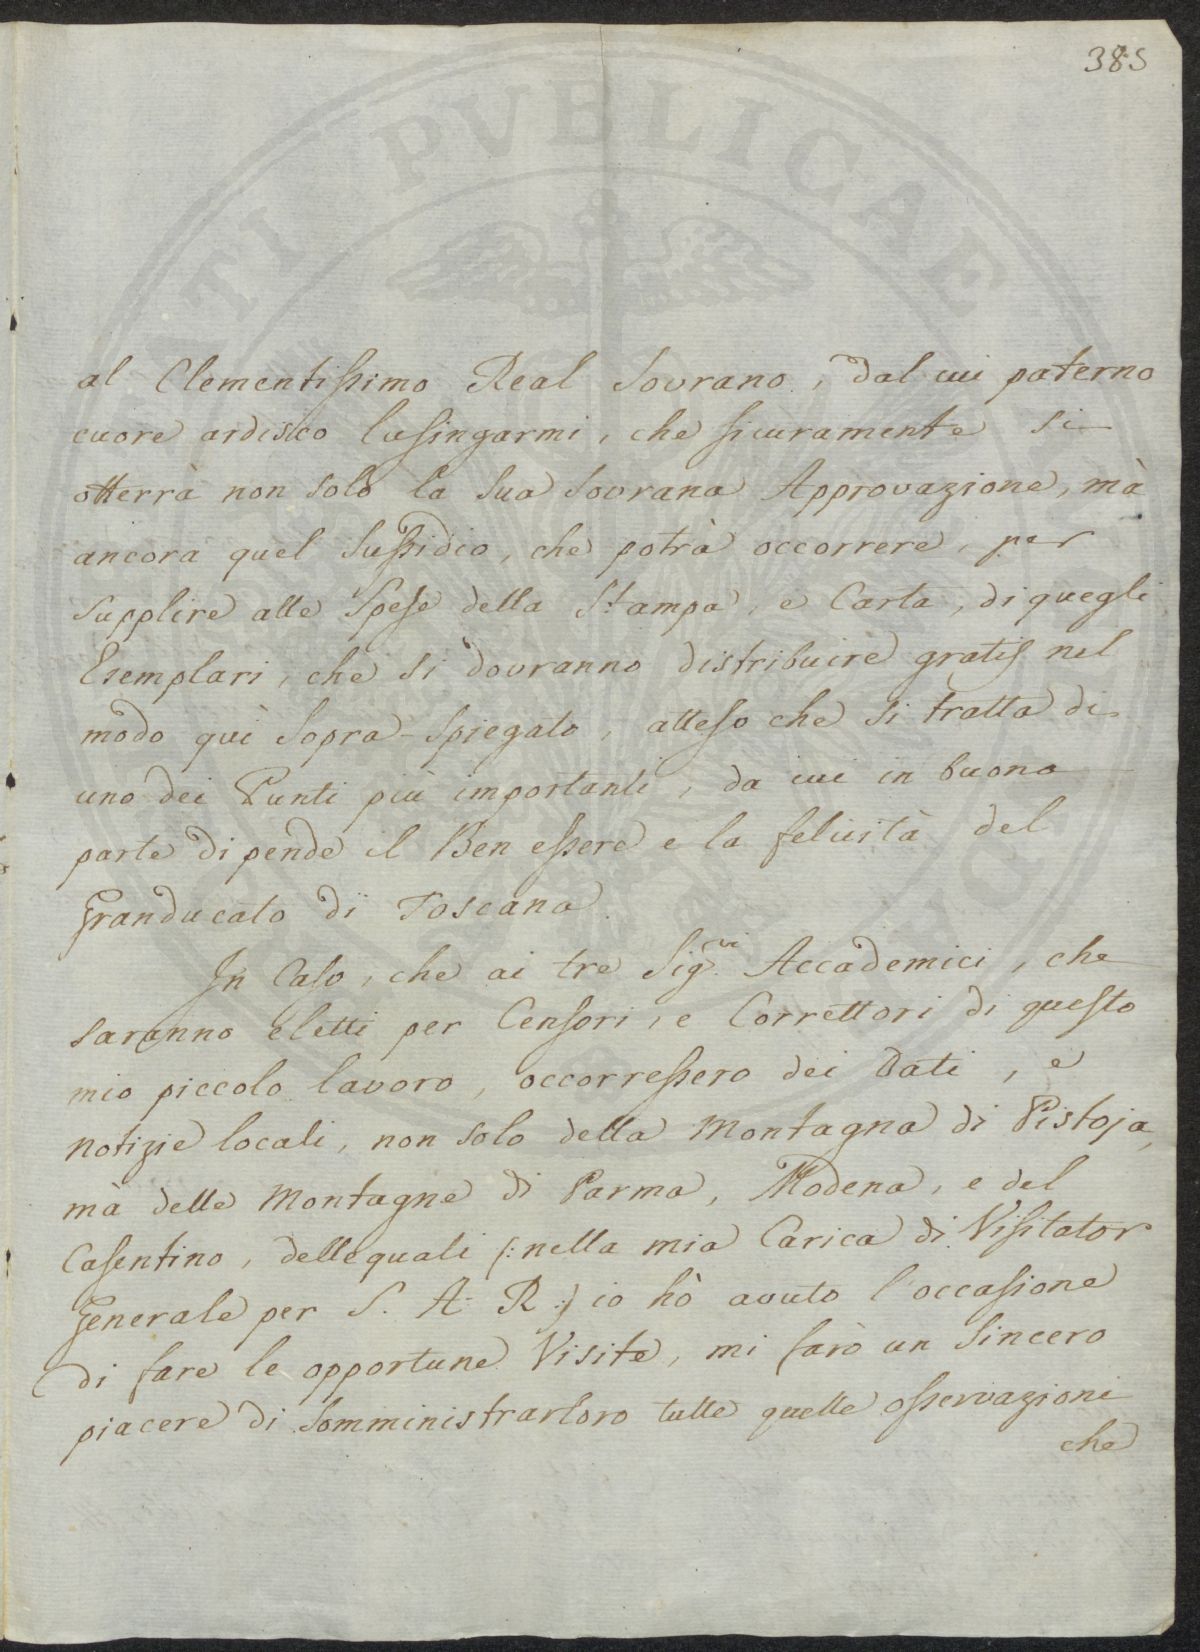 385
al Clementissimo Real Sovrano, dal cui paterno
cuore ardisco lusingarmi, che sicuramente si
otterrà non solo la sua sovrana Approvazione, mà
ancora quel sussidio, che potrà occorrere, per
supplire alle spese della Stampa, e Carta, di quegli
Esemplari, che si dovranno distribuire gratis nel
modo quì sopra-spiegato, atteso che si tratta di
uno dei Punti più importanti, da cui in buona
parte dipende il Ben essere e la felicità del
Granducato di Toscana.
In Caso, che ai tre Sig.ri Accademici, che
saranno eletti per Censori, e Correttori di questo
mio piccolo lavoro, occorressero dei Dati, e
notizie locali, non solo della Montagna di Pistoja,
mà delle Montagne di Parma, Modena, e del
Casentino, delle quali (: nella mia Carica di Visitator
Generale per S. A. R :) io hò avuto l'occasione
di fare le opportune Visite, mi farò un sincero
piacere di somministrar loro tutte quelle osservazioni
che
PUBLICAE